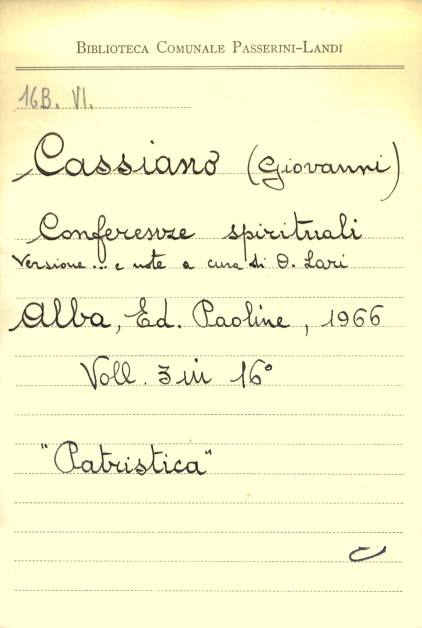 BIBLIOTECA COMUNALE PASSERINI-LANDI
16B. VI.
Cassiano (Giovanni)
Conferenze spirituali
Versione... e note a cura di O. Lari
Alba, Ed. Paoline, 1966
Voll. 3 in 16°
"Patristica"